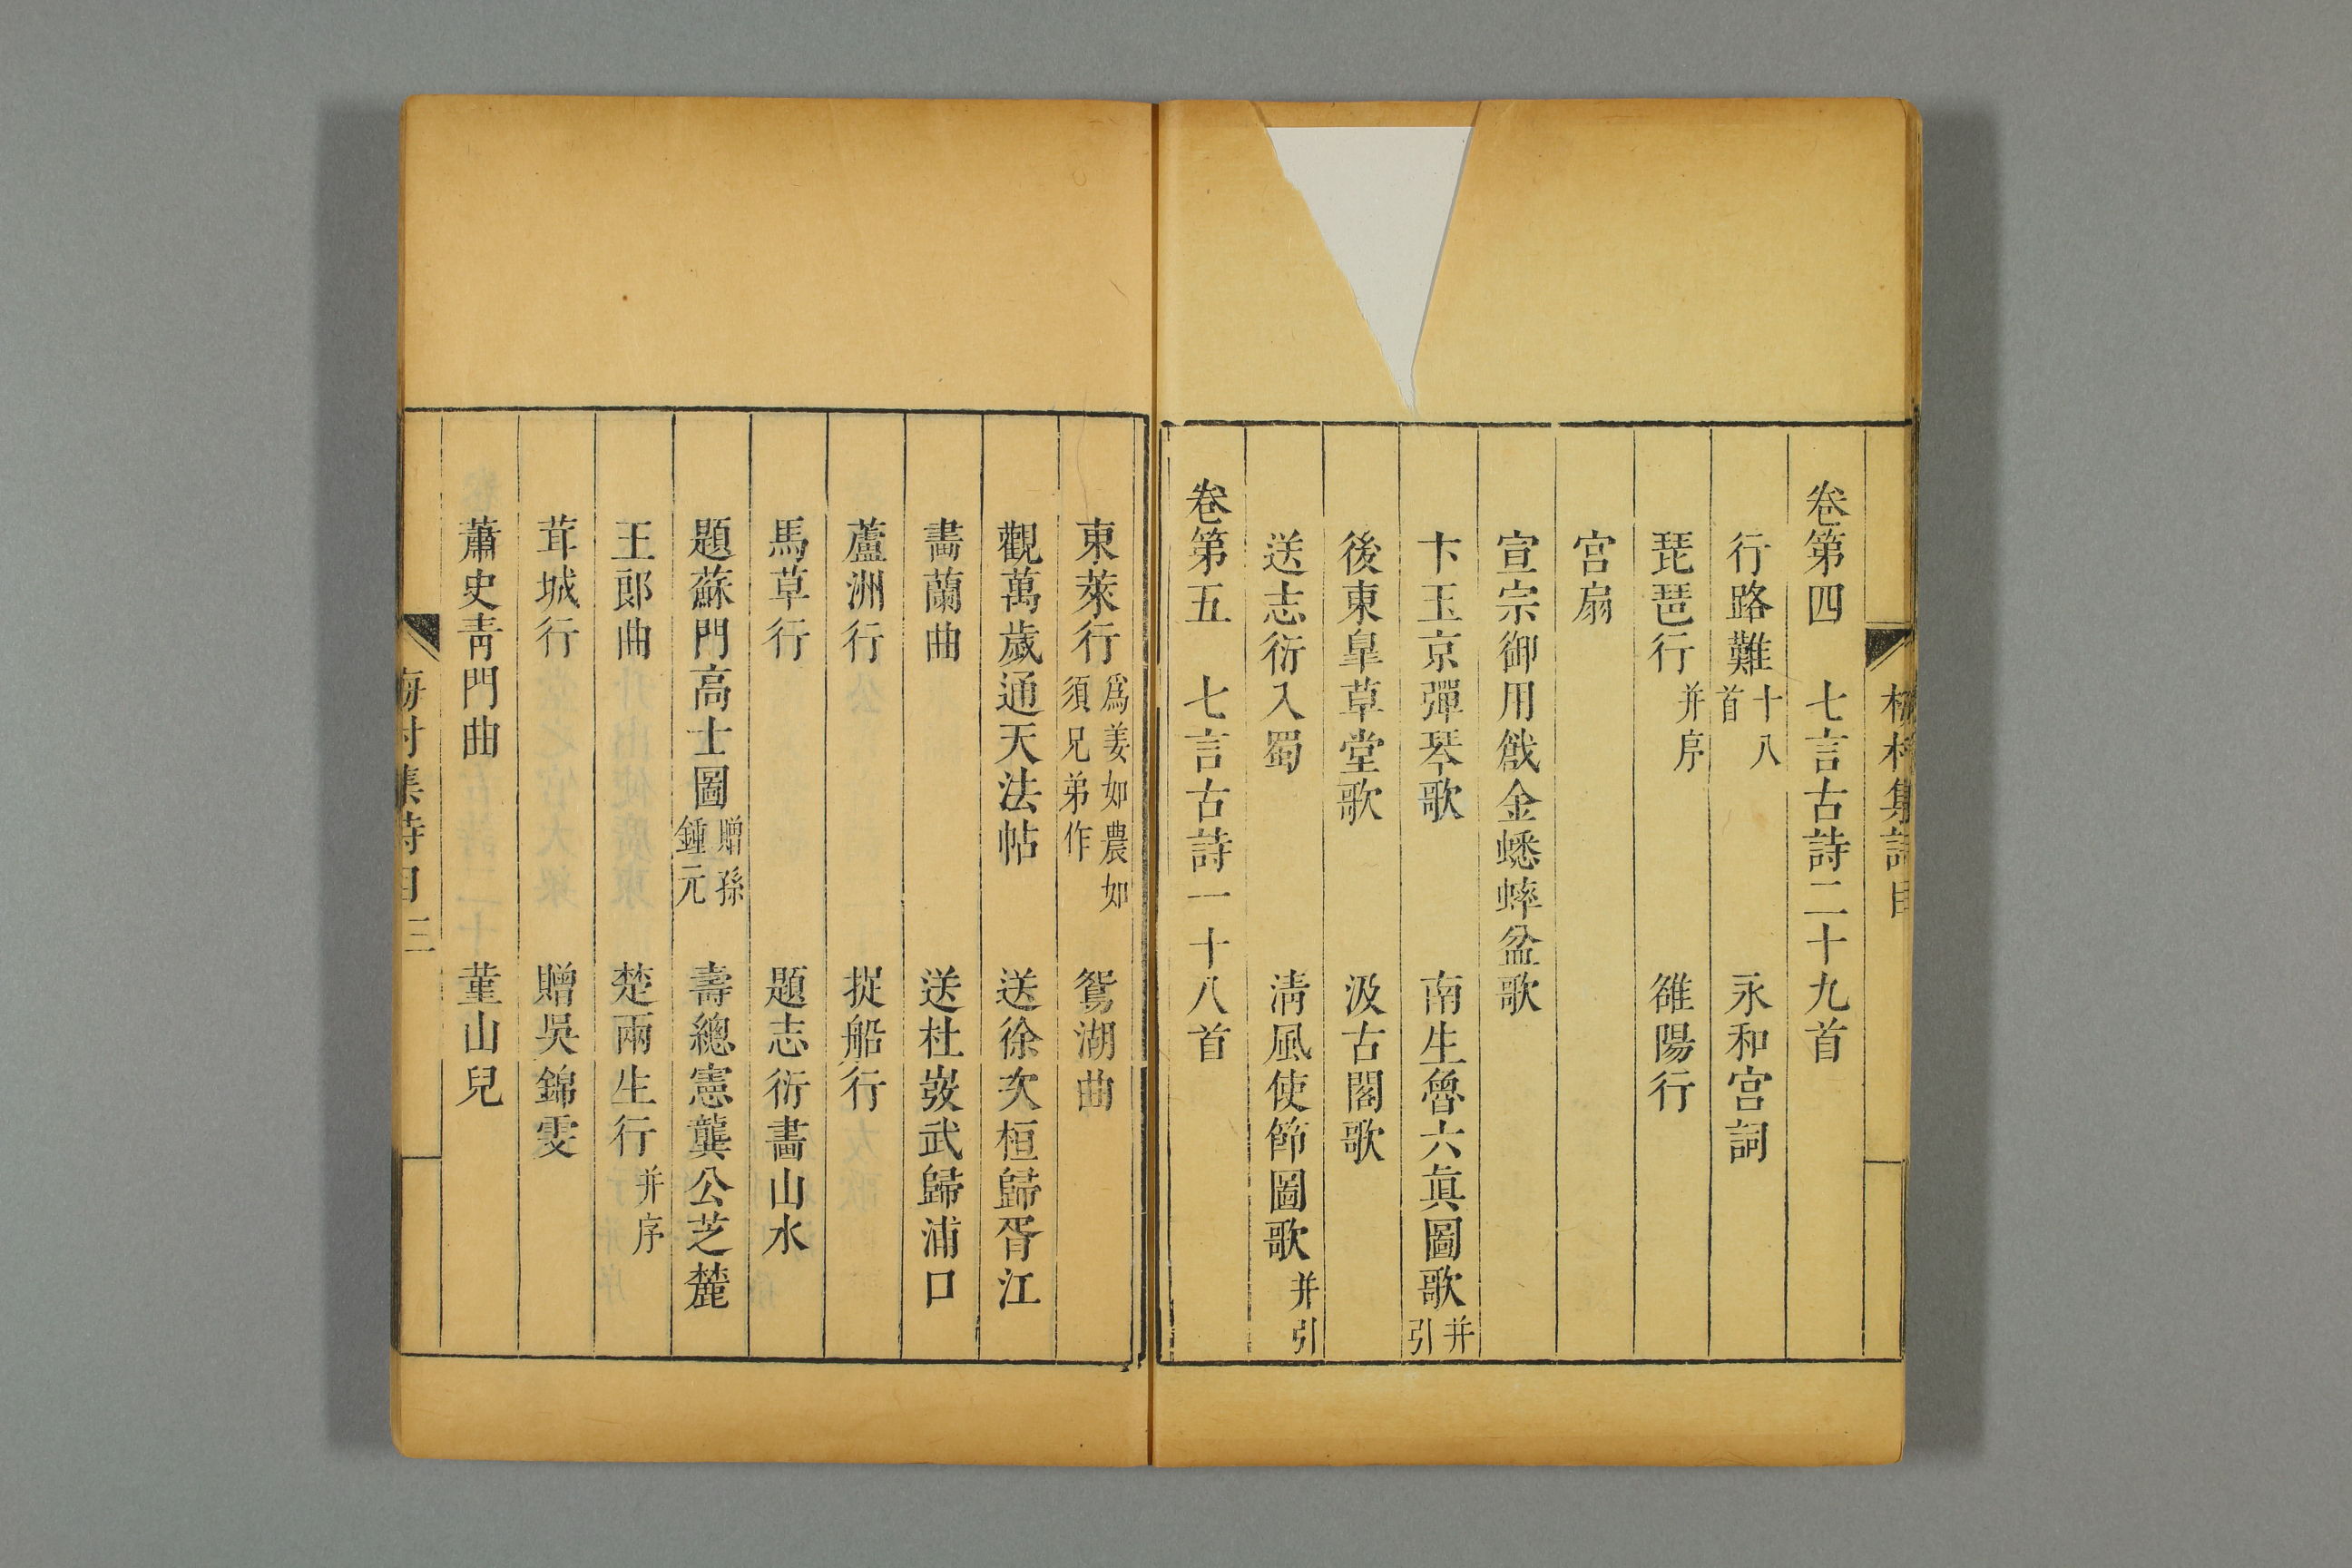 梅村集詩目
卷第四　七言古詩二十九首
行路難十八首　永和宮詞
琵琶行并序　雒陽行
宮扇
宣宗御用戧金蟋蟀盆歌
卞玉京彈琴歌　南生魯六眞圖歌并引
後東臯草堂歌　汲古閣歌
送志衍入蜀　淸風使節圖歌并引
卷第五　七言古詩一十八首
東萊行爲姜如農如須兄弟作　鴛湖曲
觀萬歲通天法帖　送徐次桓歸胥江
畵蘭曲　送杜弢武歸浦口
蘆洲行　捉船行
馬草行　題志衍畵山水
題蘇門高士圖贈孫鍾元　壽總憲龔公芝麓
王郞曲　楚兩生行并序
茸城行　贈吳錦雯
蕭史靑門曲　堇山兒
梅村集詩目　三